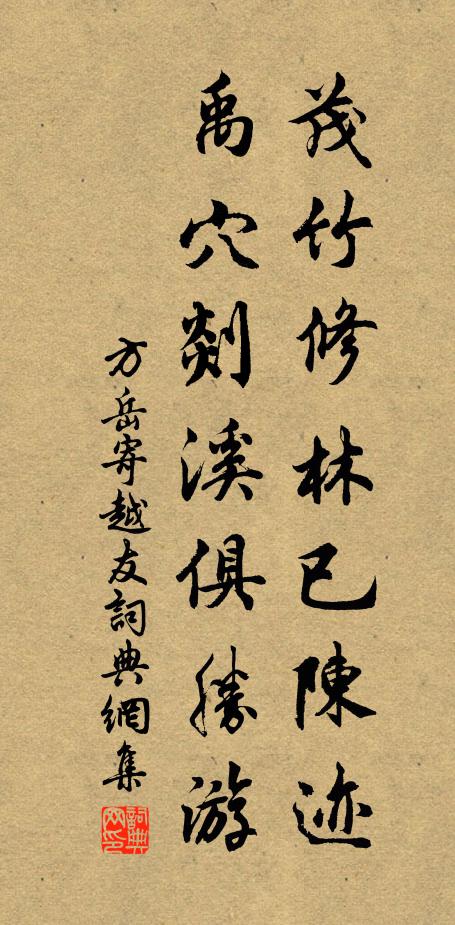 茂竹修林已陳迹
禹穴剡溪俱勝游
方岳寄越友詞典網集
詞典网印